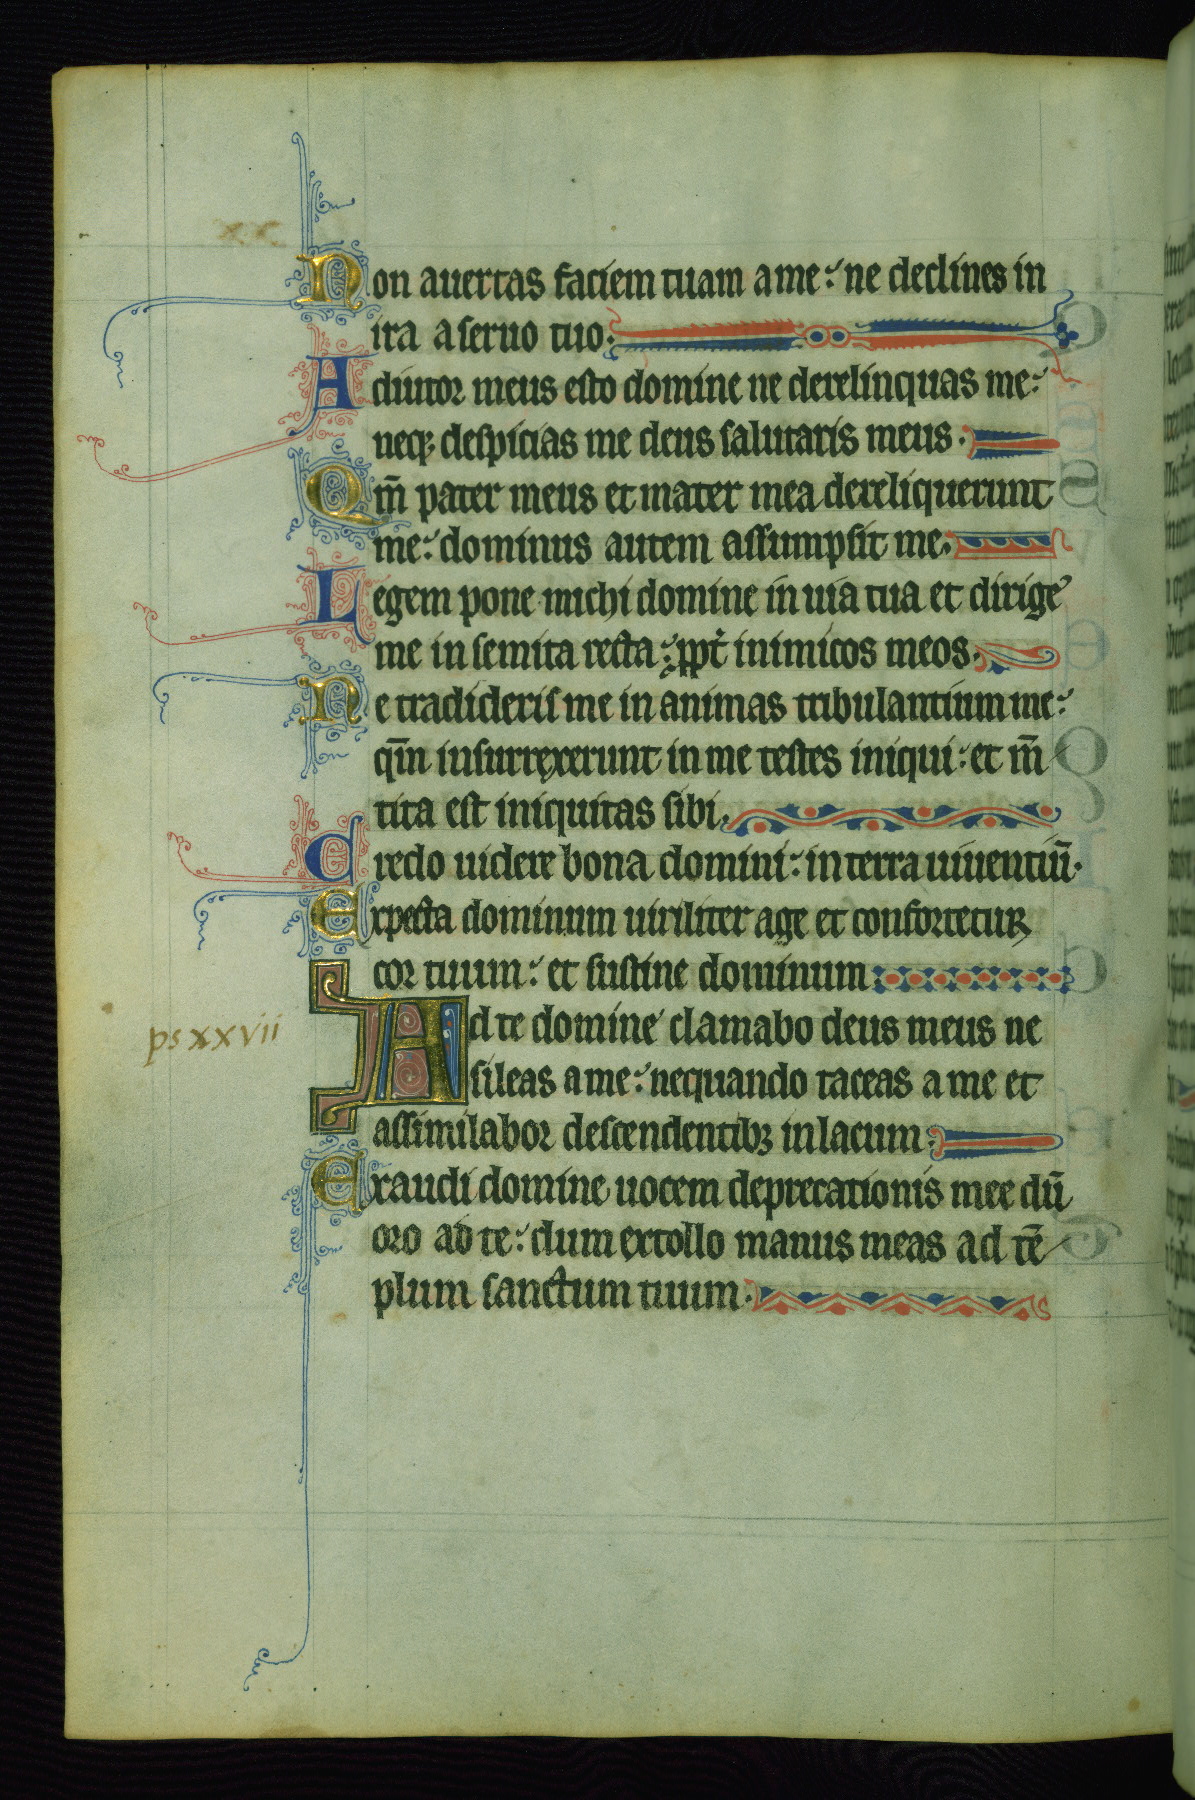 Non auertas faciem tuam a me: ne declines in
ira a seruo tuo.
Adiutor meus esto domine ne derelinquas me:
neq; despicias me deus salutaris meus.
Qm̄ pater meus et mater mea dereliquerunt
me: dominus autem assumpsit me.
Legem pone michi domine in uia tua et dirige
me in semita recta: ppt̄ inimicos meos.
Ne tradideris me in animas tribulantium me:
qm̄ insurrexerunt in me testes iniqui: et m̄
tita est iniquitas sibi.
Credo uidere bona domini: in terra uiuentiū.
Expecta dominum uiriliter age et confortetur
cor tuum: et sustine dominum.
ps xxvii
Ad te domine clamabo deus meus ne
sileas a me: nequando taceas a me et
assimilabor descendentibꝫ in lacum.
Exaudi domine uocem deprecationis mee dū
oro ad te: dum extollo manus meas ad tē
plum sanctum tuum.